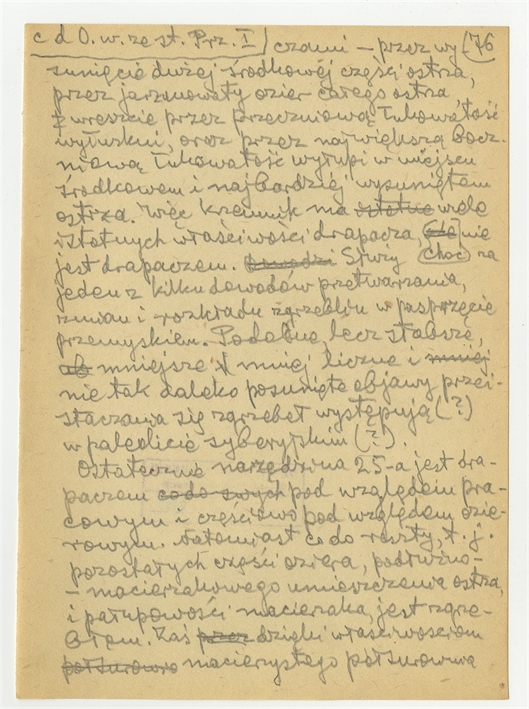 c d O. w. ze st. Prz. I) czami – przez wy (76
sunięcie dużej środkowej części ostrza,
przez jarzmowaty ozier całego ostrza,
z wreszcie przez przeczniową łukowatość
wyłuski, oraz przez największą bocz-
niową łukowatość wyłupi w miejscu
środkowem i najbardziej wysuniętem
ostrza. Więc krzemik ma istotne wiele
istotnych właściwości drapacza, nie
jest drapaczem. Służy choć za
jeden z kilku dowodów przetwarzania,
zmian i rozkładu zgrzeblin w pasprzęcie
przemyskiem. Podobne, lecz słabsze,
mniejsze i mniej liczne i mniej
nie tak daleko posunięte objawy przei-
staczania się zgrzebeł występują (?)
w paleolicie syberyjskim (?).
Ostatecznie narzędzina 25-a jest dra-
paczem co do swych pod względem pra-
cowym i częściowo pod względem ozie-
rowym. Natomiast co do reszty, t. j.
pozostałych części oziera, podłużno-
– macierzakowego umieszczenia ostrza,
i pałupowości macierzaka, jest zgrze-
błem. Zaś przez dzięki właściwościom
półsurowia macierzystego półsurowca